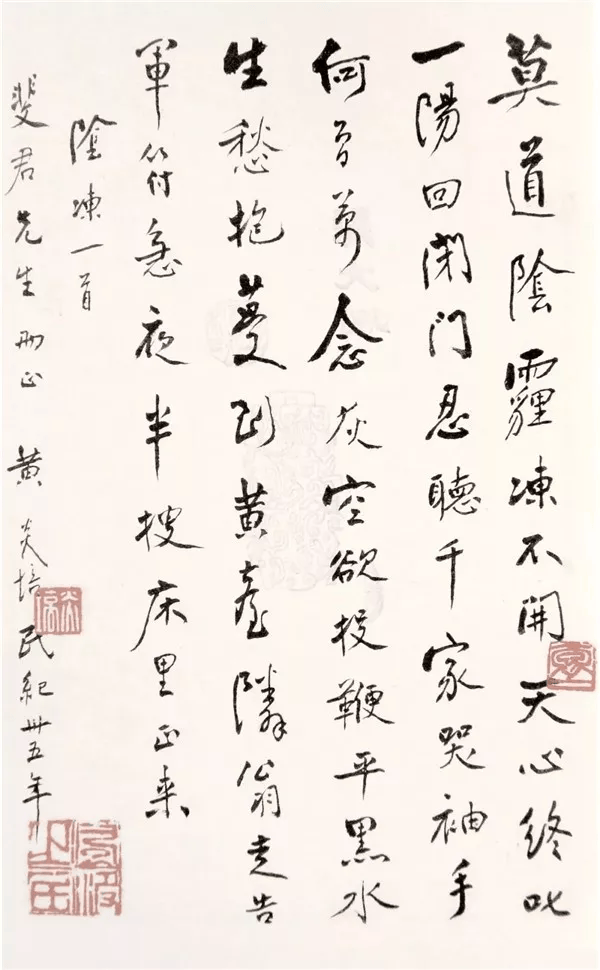 莫道陰霾凍不開天心終叱
一陽回閉門忍聽千家哭袖手
何曾萬念灰空欲投鞭平黑水
生愁抱蔓到黃臺隣翁走告
軍符急夜半搜床里正來
陰凍一首
斐君先生 刪正 黃炎培 民紀卅五年